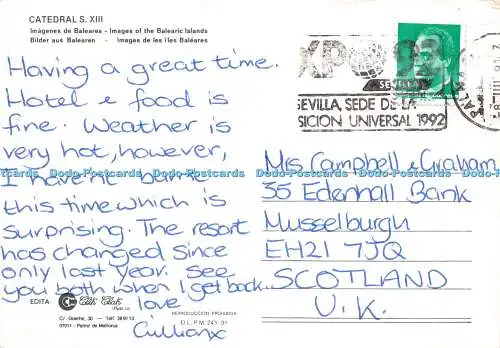 CATEDRAL S. XIII
Imágenes de Baleares - Images of the Balearic Islands
Bilder aus Balearen - Images de les îles Baléares
Having a great time.
Hotel & food is
fine. Weather is
very hot, however,
I haven't burnt
this time which is
surprising. The resort
has changed since
only last year. See
you both when I get back.
love
Gillianx
XPO 92
SEVILLA
SEVILLA, SEDE DE LA
SICION UNIVERSAL 1992
Mrs Campbell & Graham
35 Edenhall Bank
Musselburgh
EH21 7JQ
SCOTLAND
U.K.
EDITA:
C/. Goethe, 30 - Telf. 28
07011 - Palma de Mallorca
REPRODUCCION PROHIBIDA
D.L.P.M. 243-91
Dodo-Postcards Dodo-Postcards Dodo-Postcards Dodo-Postcards